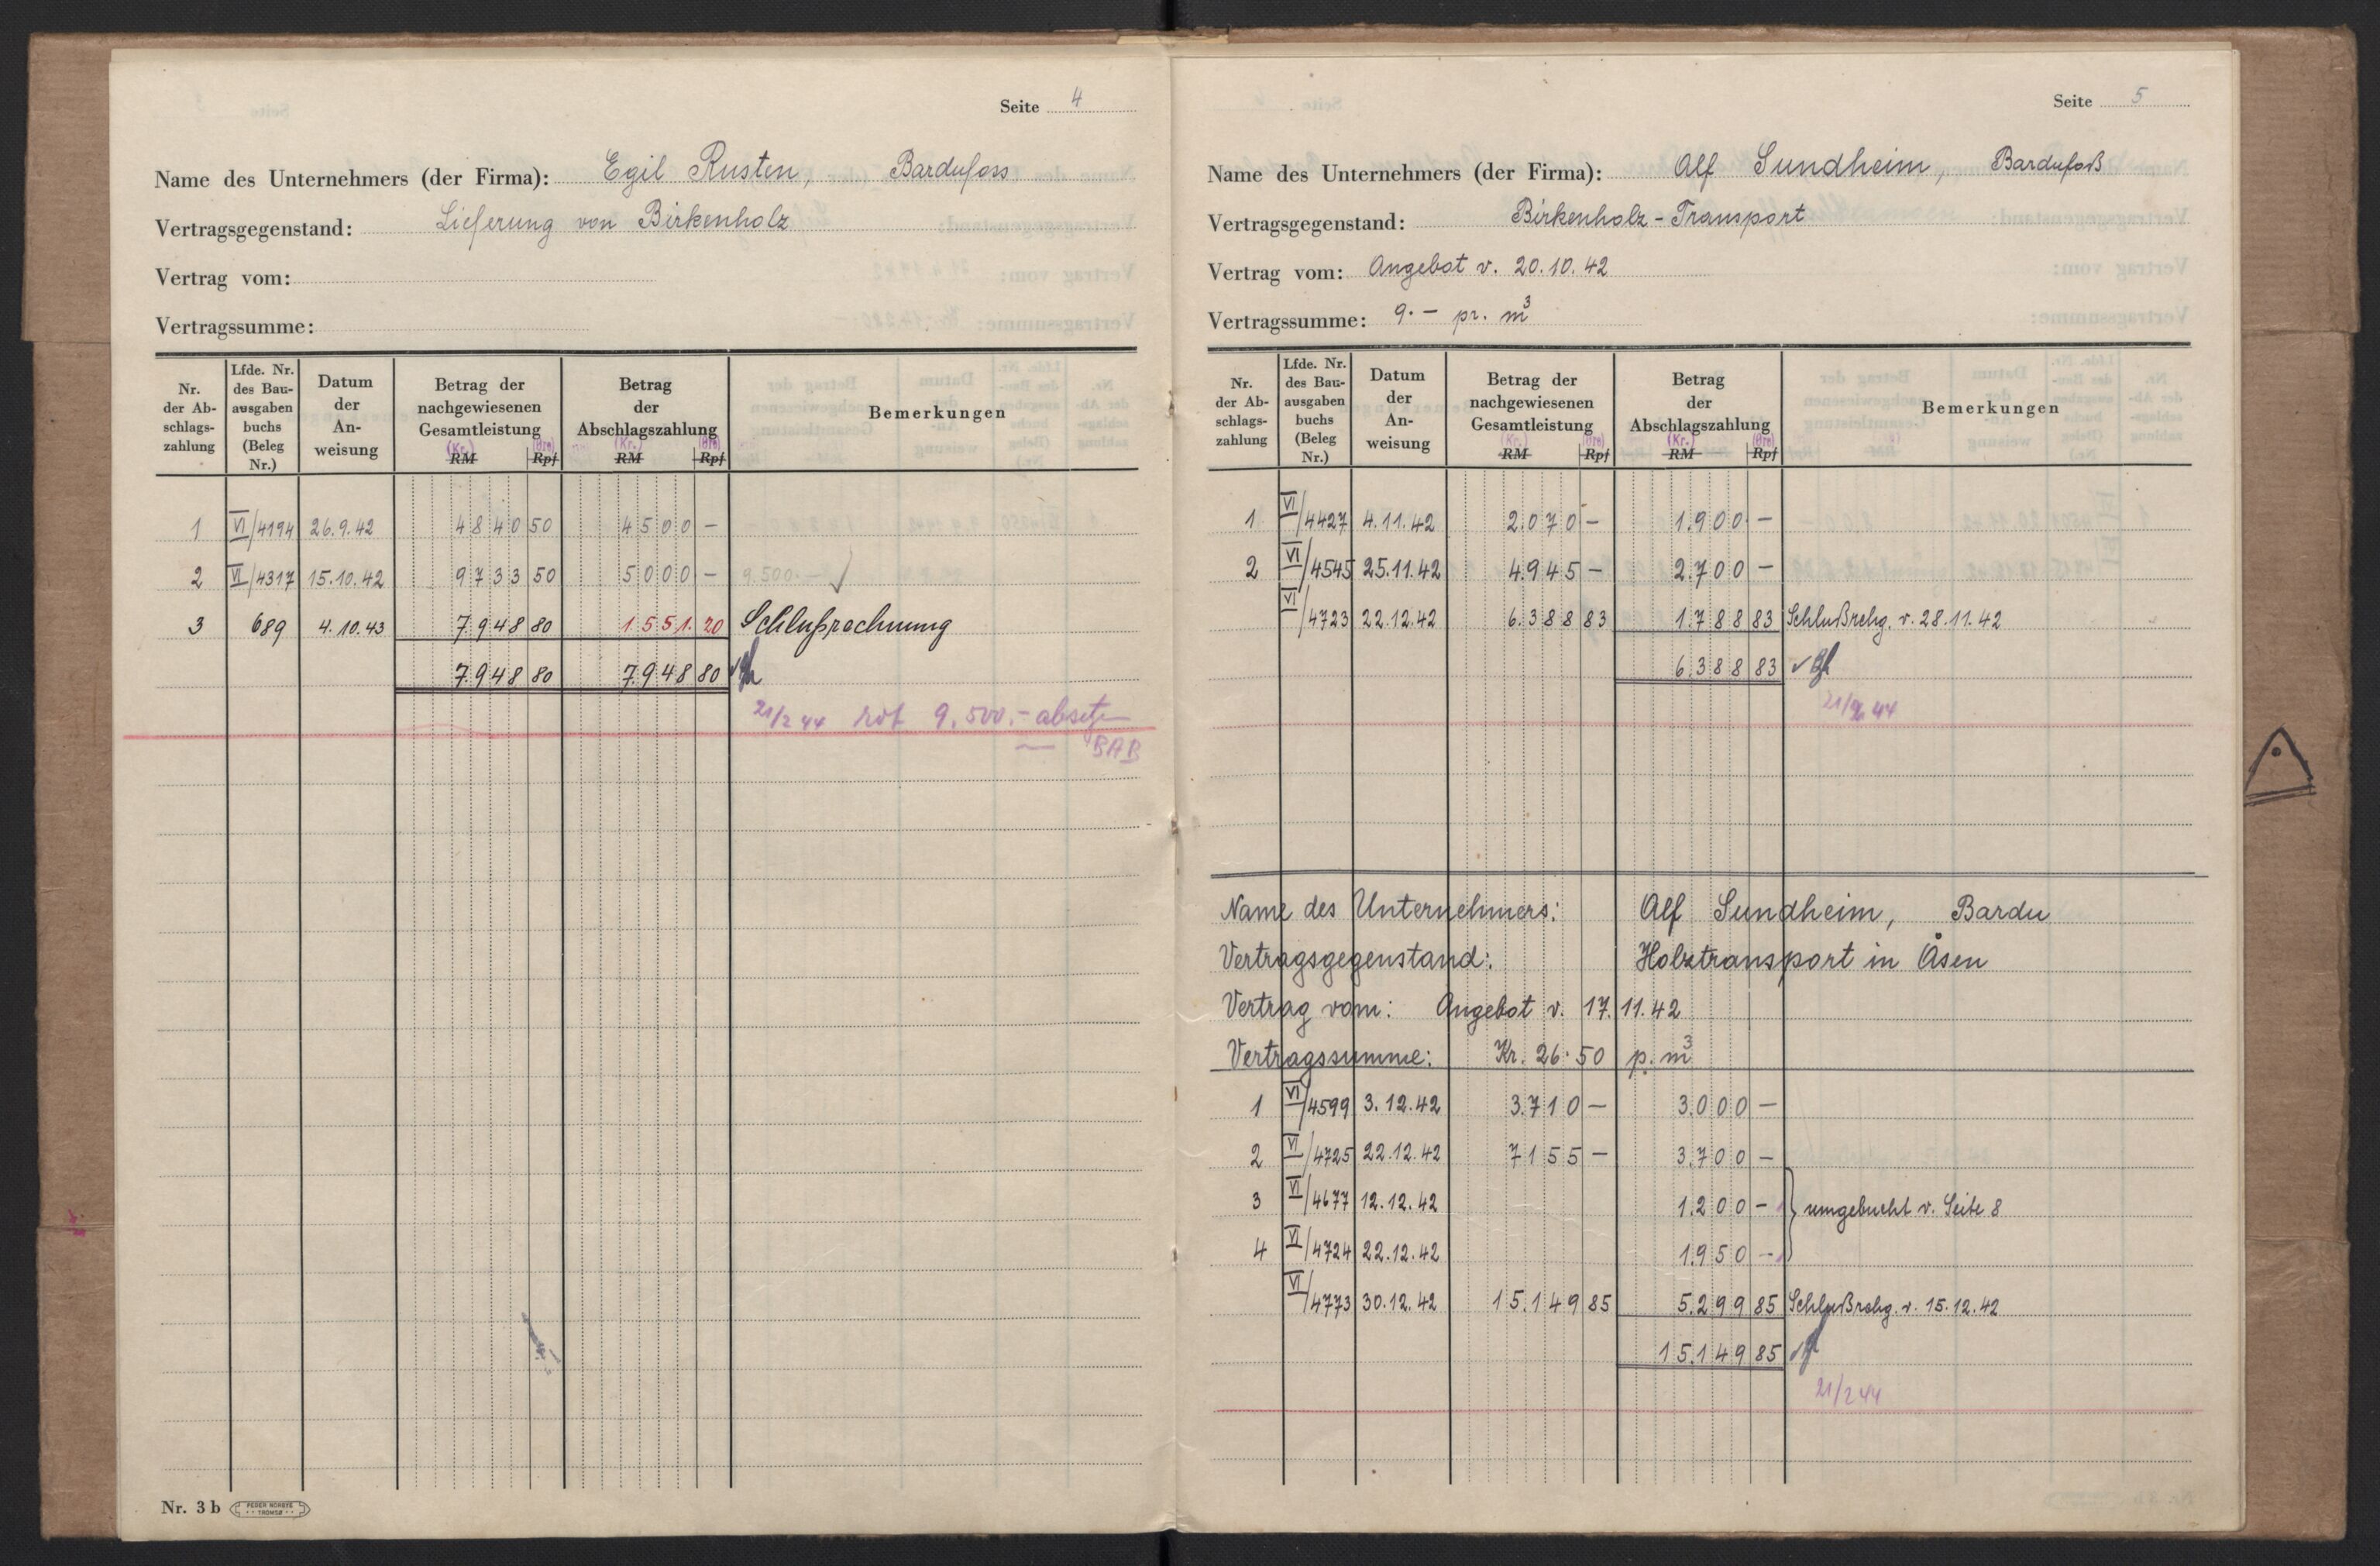 Seite 4
Name des Unternehmers (der Firma): Egil Rusten, Bardufoss
Vertragsgegenstand: Lieferung von Birkenholz
Vertrag vom:
Vertragssumme:
Nr. der Ab-schlags-zahlung | Lfde. Nr. des Bau-ausgaben buchs (Beleg Nr.) | Datum der An-weisung | Betrag der nachgewiesenen Gesamtleistung (Kr.) RM (Øre) Rpf | Betrag der Abschlagszahlung (Kr.) RM (Øre) Rpf | Bemerkungen
1 VI/4194 26.9.42 4840 50 4500 —
2 VI/4317 15.10.42 9733 50 5000 — 9.500.—
3 689 4.10.43 7.948 80 1.551. 20 Schlußrechnung
7.948 80 7.948 80
21/2 44 rot 9.500.- absetzen
BAB
Nr. 3 b PEDER NORBYE TROMSØ
Seite 5
Name des Unternehmers (der Firma): Alf Sundheim, Bardufoß
Vertragsgegenstand: Birkenholz-Transport
Vertrag vom: Angebot v. 20.10.42
Vertragssumme: 9.— pr. m³
Nr. der Ab-schlags-zahlung | Lfde. Nr. des Bau-ausgaben buchs (Beleg Nr.) | Datum der An-weisung | Betrag der nachgewiesenen Gesamtleistung (Kr.) RM (Øre) Rpf | Betrag der Abschlagszahlung (Kr.) RM (Øre) Rpf | Bemerkungen
1 VI/4427 4.11.42 2.070 — 1.900 —
2 VI/4545 25.11.42 4.945 — 2.700 —
VI/4723 22.12.42 6.388 83 1.788 83 Schlußrchg. v. 28.11.42
6.388 83
21/2 44
Name des Unternehmers: Alf Sundheim, Bardu
Vertragsgegenstand: Holztransport in Åsen
Vertrag vom: Angebot v. 17.11.42
Vertragssumme: Kr. 26.50 p. m³
1 VI/4599 3.12.42 3.710 — 3.000 —
2 VI/4725 22.12.42 7155 — 3.700 —
3 VI/4677 12.12.42 1.200 — umgebucht v. Seite 8
4 VI/4724 22.12.42 1.950 —
VI/4773 30.12.42 15.149 85 5.299 85 Schlußrchg. v. 15.12.42
15.149 85
21/2 44